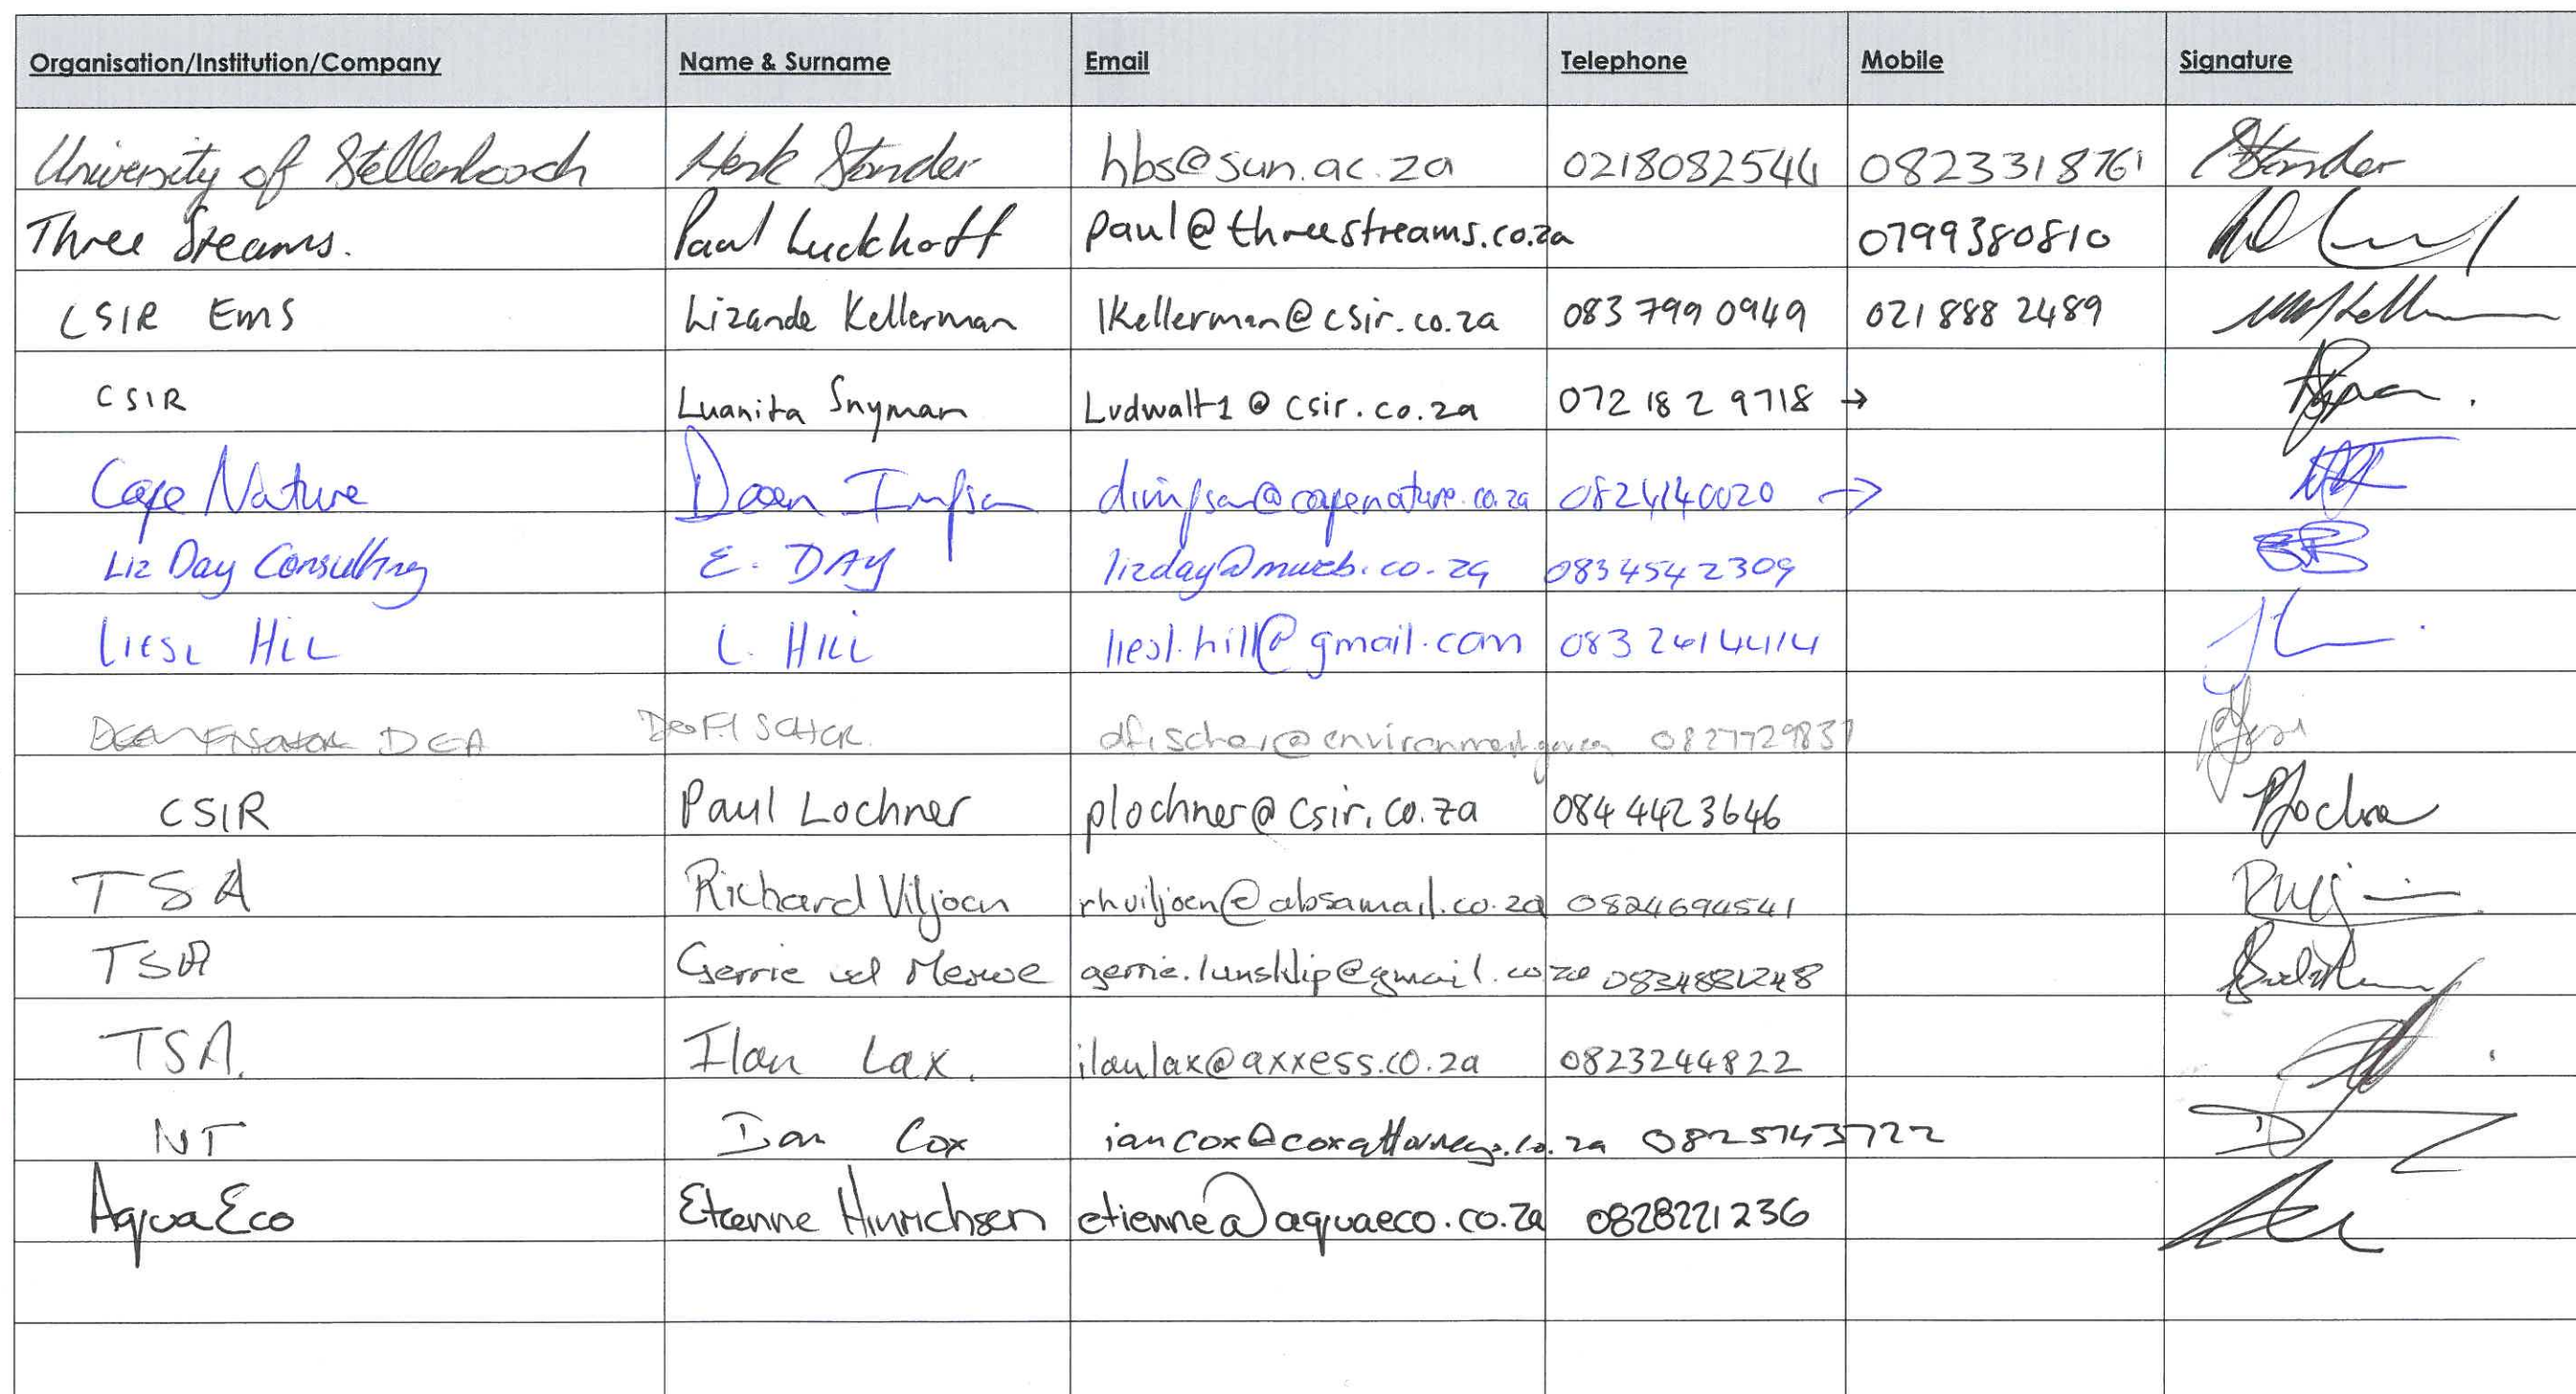 Organisation/Institution/Company Name & Surname Email Telephone Mobile Signature
University of Stellenbosch Henk Stander hbs@sun.ac.za 0218082544 0823318761 Stander
Three Streams. Paul Luckhoff paul@threestreams.co.za 0799380810
CSIR EMS Lizande Kellerman lkellerman@csir.co.za 083 799 0949 021 888 2489
CSIR Luanita Snyman Lvdwalt1@csir.co.za 072 182 9718 →
Cape Nature Dean Impson dimpson@capenature.co.za 0824140020 →
Liz Day Consulting E. DAY lizday@mweb.co.za 0834542309
LIESL HILL L. HILL liesl.hill@gmail.com 083 2614414
DEA FISCHER dfischer@environment.gov.za 0827729837
CSIR Paul Lochner plochner@csir.co.za 084 442 3646
TSA Richard Viljoen rhviljoen@absamail.co.za 0824694541
TSA Gerrie vd Merwe 0834881248
TSA. Ilan Lax. ilanlax@axxess.co.za 0823244822
NT Ian Cox iancox@coxattorneys.co.za 0825743722
AquaEco Etienne Hinrichsen etienne@aquaeco.co.za 0828221236